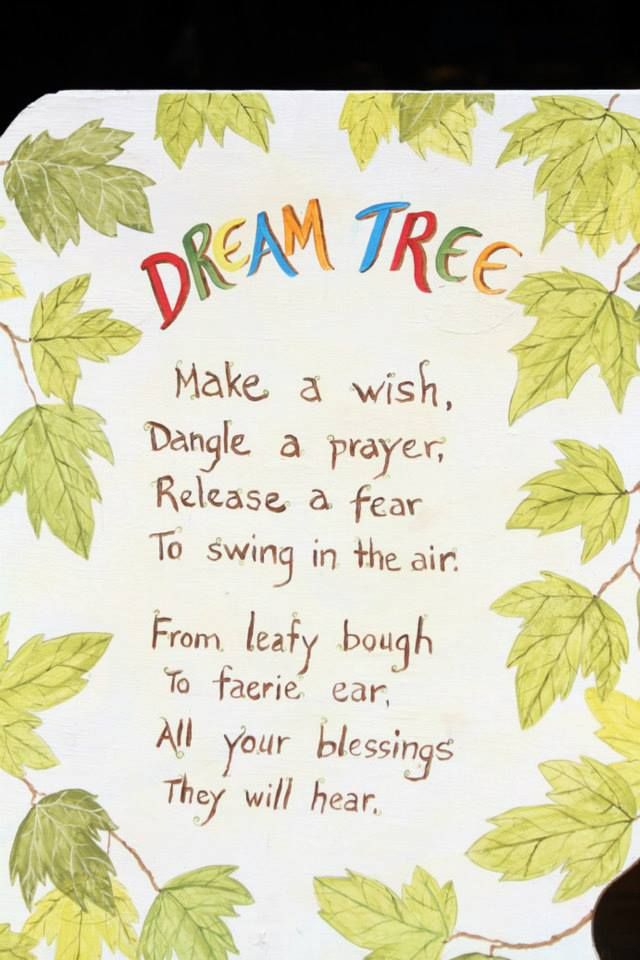 DREAM TREE
Make a wish,
Dangle a prayer,
Release a fear
To swing in the air.
From leafy bough
To faerie ear,
All your blessings
They will hear.